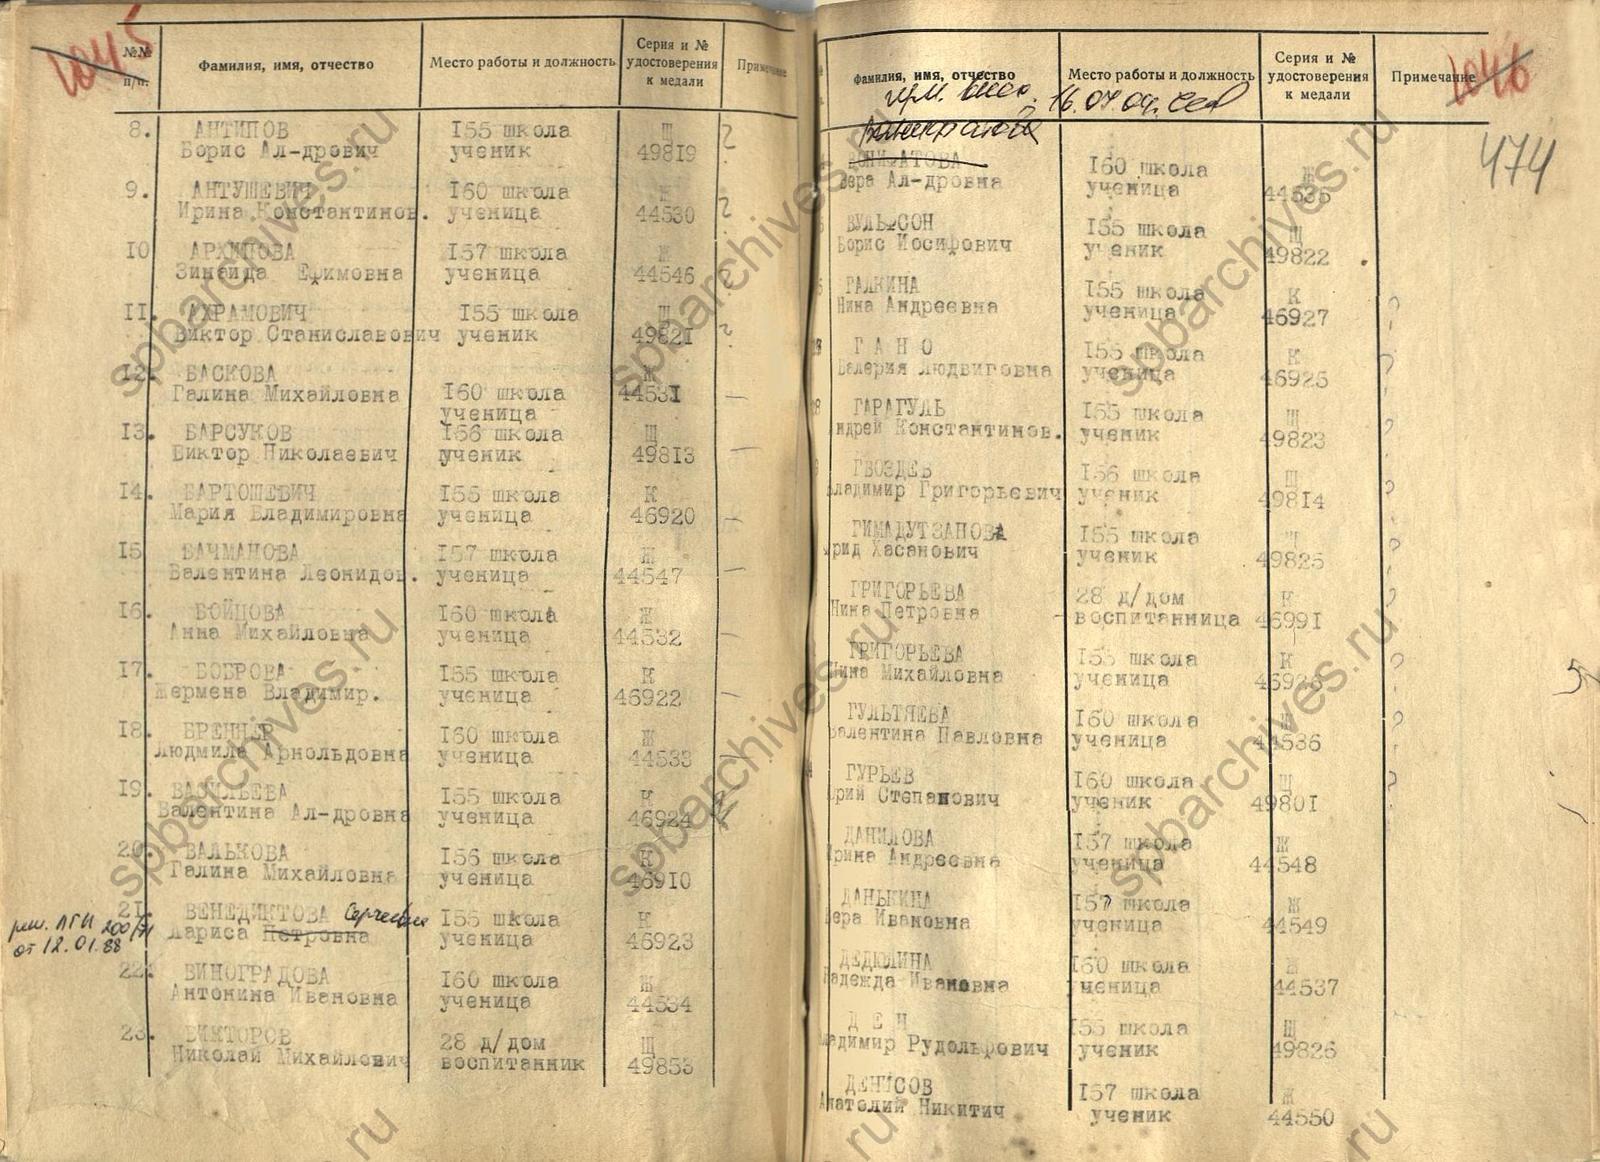 1045
№№ п/п.
Фамилия, имя, отчество
Место работы и должность
Серия и № удостоверения к медали
Примечание
8. АНТИПОВ 155 школа Щ ?
Борис Ал-дрович ученик 49819
9. АНТУШЕВИЧ 160 школа Ж
Ирина Константинов. ученица 44530 ?
10 АРХИПОВА 157 школа Ж
Зинаида Ефимовна ученица 44546 ?
11. АХРАМОВИЧ 155 школа Щ
Виктор Станиславович ученик 49821 ?
12. БАСКОВА Ж
Галина Михайловна 160 школа 44531 —
ученица
13. БАРСУКОВ 156 школа Щ
Виктор Николаевич ученик 49813 —
14. БАРТОШЕВИЧ 155 школа К
Мария Владимировна ученица 46920 —
15 БАЧМАНОВА 157 школа Ж
Валентина Леонидов. ученица 44547 —
16. БОЙЦОВА 160 школа Ж
Анна Михайловна ученица 44532 —
17. БОБРОВА 155 школа К
Жермена Владимир. ученица 46922 —
18. БРЕННЕР 160 школа Ж
Людмила Арнольдовна ученица 44533 —
19. ВАСИЛЬЕВА 155 школа К
Валентина Ал-дровна ученица 46924
20. ВАЛЬКОВА 156 школа К
Галина Михайловна ученица 46910
21. ВЕНЕДИКТОВА Сергеевна 155 школа К
Лариса Петровна ученица 46923
реш. ЛГИ 200/71
от 12.01.88
22. ВИНОГРАДОВА 160 школа Ж
Антонина Ивановна ученица 44534
23. ВИКТОРОВ 28 д/дом Щ
Николай Михайлович воспитанник 49853
1046
474
Фамилия, имя, отчество
Место работы и должность
Серия и № удостоверения к медали
Примечание
16.04.04.
160 школа Ж
Вера Ал-дровна ученица 44535
ВУЛЬФСОН 155 школа Щ
Борис Иосифович ученик 49822
ГАЛКИНА 155 школа К
Нина Андреевна ученица 46927 ?
ГАНО 155 школа К
Валерия Людвиговна ученица 46925 ?
ГАРАГУЛЬ 155 школа Щ
Андрей Константинов. ученик 49823 ?
ГВОЗДЕВ 156 школа Щ
Владимир Григорьевич ученик 49814 ?
155 школа Щ
Хасанович ученик 49825 ?
ГРИГОРЬЕВА 28 д/дом К
Нина Петровна воспитанница 46991 ?
ГРИГОРЬЕВА 155 школа К
Нина Михайловна ученица ?
ГУЛЬТЯЕВА 160 школа Ж
Валентина Павловна ученица 44536 ?
ГУРЬЕВ 160 школа Щ
Юрий Степанович ученик 49801 ?
ДАНИЛОВА 157 школа Ж
Ирина Андреевна ученица 44548
ДАНЬКИНА 157 школа Ж
Вера Ивановна ученица 44549
ДЕДЮЛИНА 160 школа Ж
Надежда Ивановна ученица 44537
ДЕН 155 школа Щ
Владимир Рудольфович ученик 49826
ДЕНИСОВ 157 школа Ж
Анатолий Никитич ученик 44550
spbarchives.ru